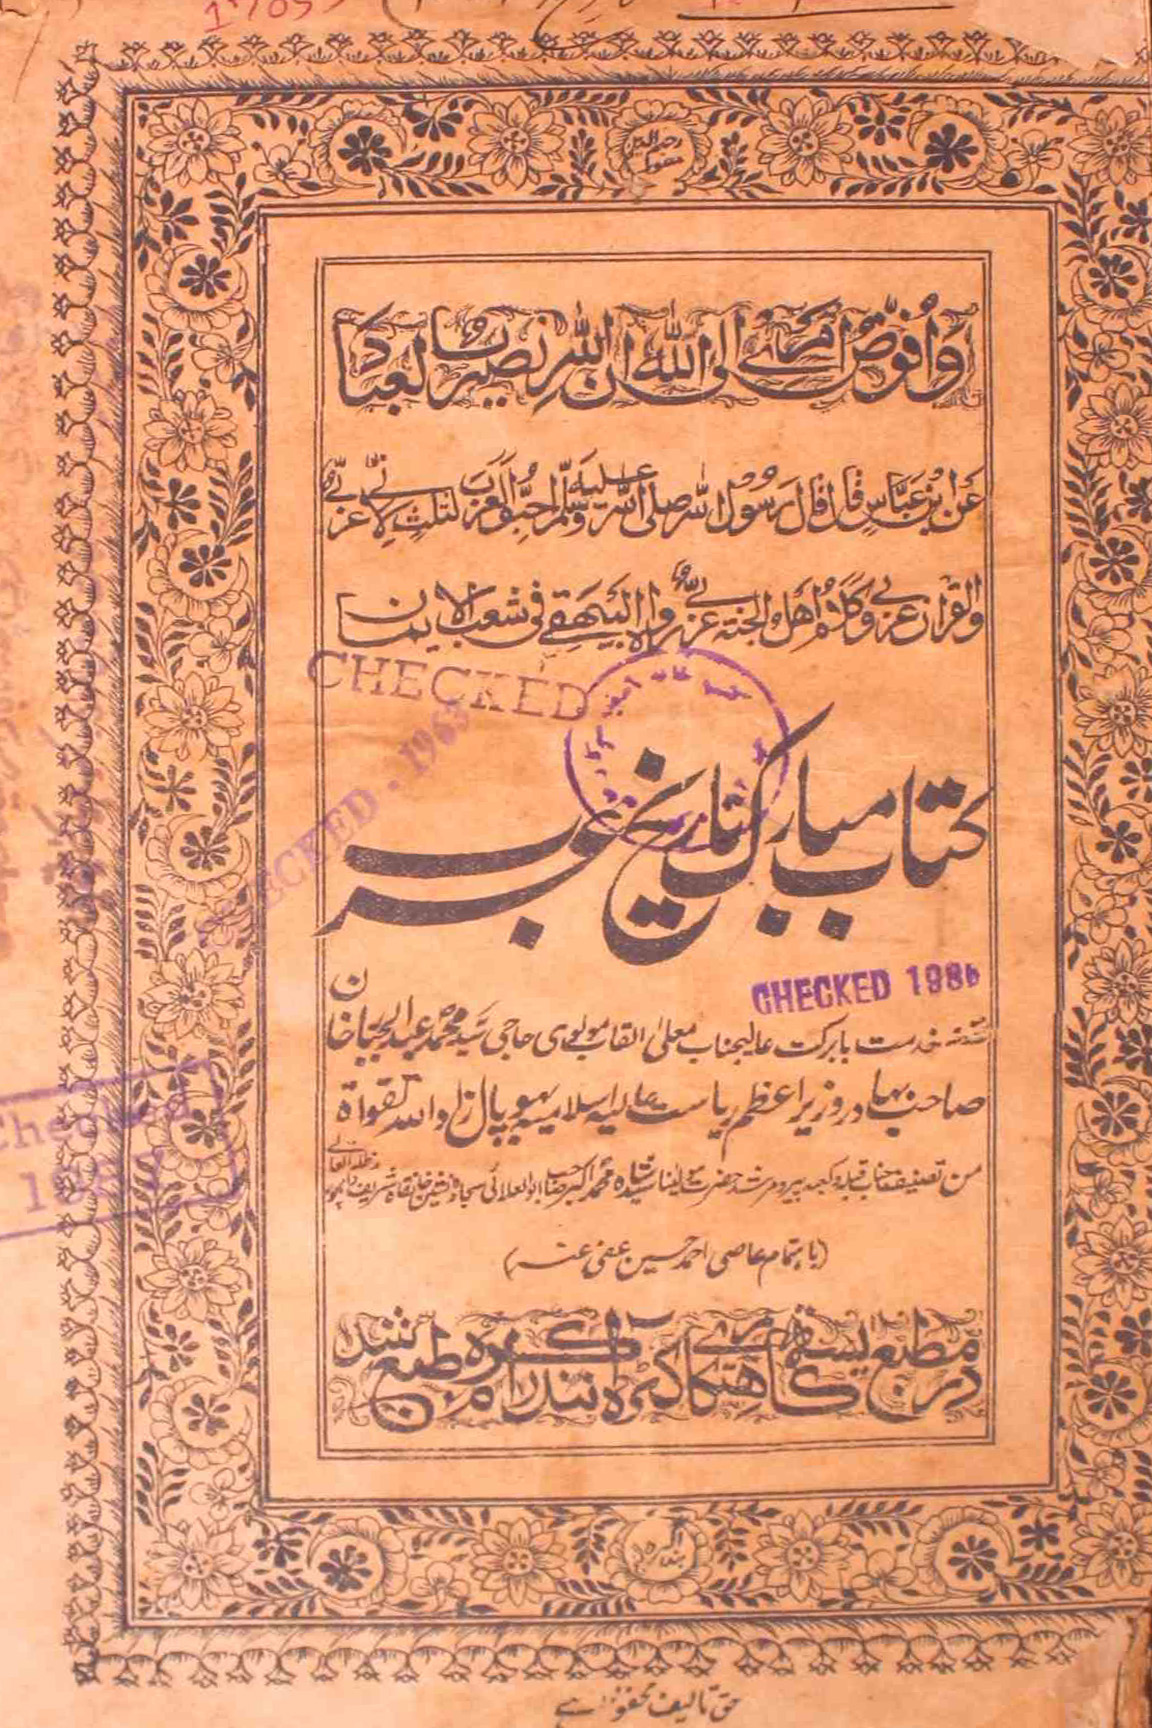 وَاُفَوِّضُ اَمْرِيْ اِلَى اللّٰهِ اِنَّ اللّٰهَ بَصِيْرٌ بِالْعِبَادِ
عَن ابْن عَبَّاسٍ قَالَ قَالَ رَسُوْلُ اللّٰه صلى اللّٰه عليه وسلم احبوا العرب لثلث لانى عربى
والقرآن عربى وكلام اهل الجنة عربى رواه البيهقى فى شعب الايمان
CHECKED
CHECKED . 1963
کتاب مبارک تاریخ عرب
CHECKED 1986
خدمت بابرکت عالیجناب معلی القاب مولوی حاجی سید محمد عبدالجبار خان
صاحب بہادر وزیراعظم ریاست عالیہ اسلامیہ بھوپال زاد اللہ تقواہ
Checked
من تصنیف جناب قبلہ و کعبہ پیر و مرشد حضرت مولینا سید شاہ محمد اکبر صاحب ابوالعلائی سجادہ نشین خانقاہ شریف مدظلہ العالی
(باہتمام عاصی احمد حسین عفی عنہ)
در مطبع آگرہ طبع شد
حق تالیف محفوظ ہے